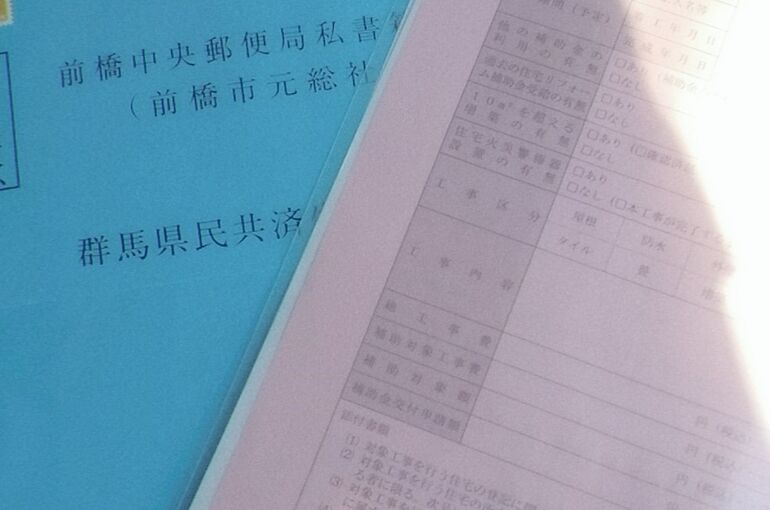 前橋中央郵便局私書
（前橋市元総社
群馬県民共済
期間（予定）
着工年月日
完成年月日
他の補助金の
利用の有無
□あり（補助金
□なし
過去の住宅リフォー
ム補助金受給の有無
□あり
□なし
10㎡を超える
増築の有無
□あり（□確認済
□なし
住宅火災警報器
設置の有無
□あり
□なし（□本工事が完了する
工事区分
屋根
防水
タイル
畳
工事内容
総工事費
補助対象工事費
円（税込）
補助対象額
円（税込）
補助金交付申請額
円
添付書類
(1) 対象工事を行う住宅の登記に関
(2) 対象工事を行う住宅の
る者に限る。次
(3) 対象工事を